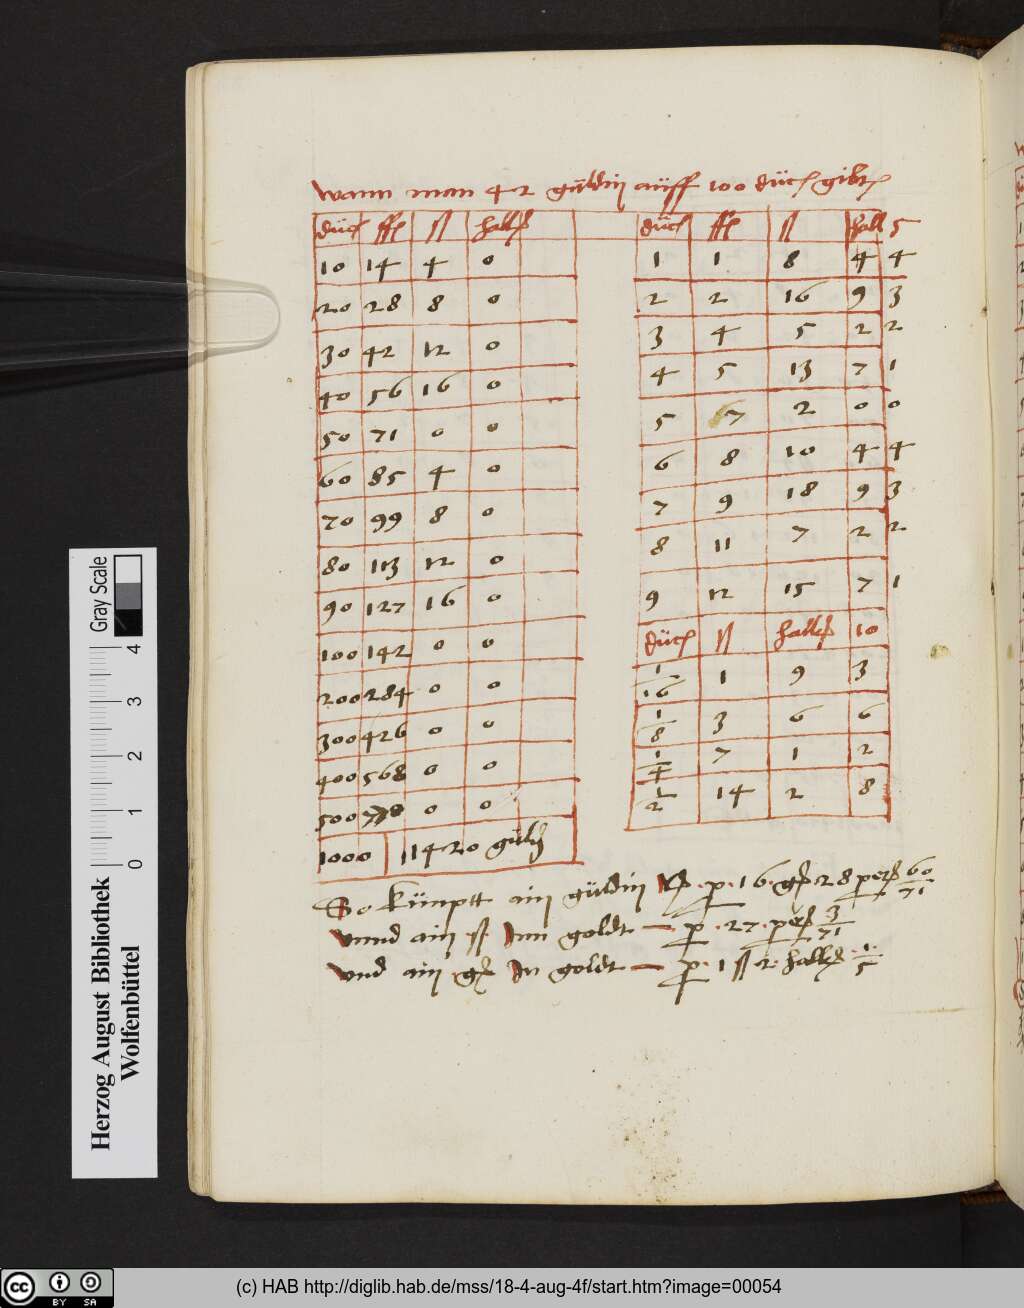 wann man 42 güldin auff 100 duc gibt
duc ffl ß haller
10 14 4 0
20 28 8 0
30 42 12 0
40 56 16 0
50 71 0 0
60 85 4 0
70 99 8 0
80 113 12 0
90 127 16 0
100 142 0 0
200 284 0 0
300 426 0 0
400 568 0 0
500 0 0
1000 1420 guld
duc ffl ß hall 5
1 1 8 4 4
2 2 16 9 3
3 4 5 2 2
4 5 13 7 1
5 7 2 0 0
6 8 10 4 4
7 9 18 9 3
8 11 7 2 2
9 12 15 7 1
duc ß haller 10
1/16 1 9 3
1/8 3 6 6
1/4 7 1 2
1/2 14 2 8
So kümptt ain güldin p 16 28 60/71
vnnd ain ß Inn goldt — p 27 3/71
vnd ain In goldt — p 1 ß 2 haller 1/5
Gray Scale
0 1 2 3 4
Herzog August Bibliothek
Wolfenbüttel
cc BY SA
(c) HAB http://diglib.hab.de/mss/18-4-aug-4f/start.htm?image=00054